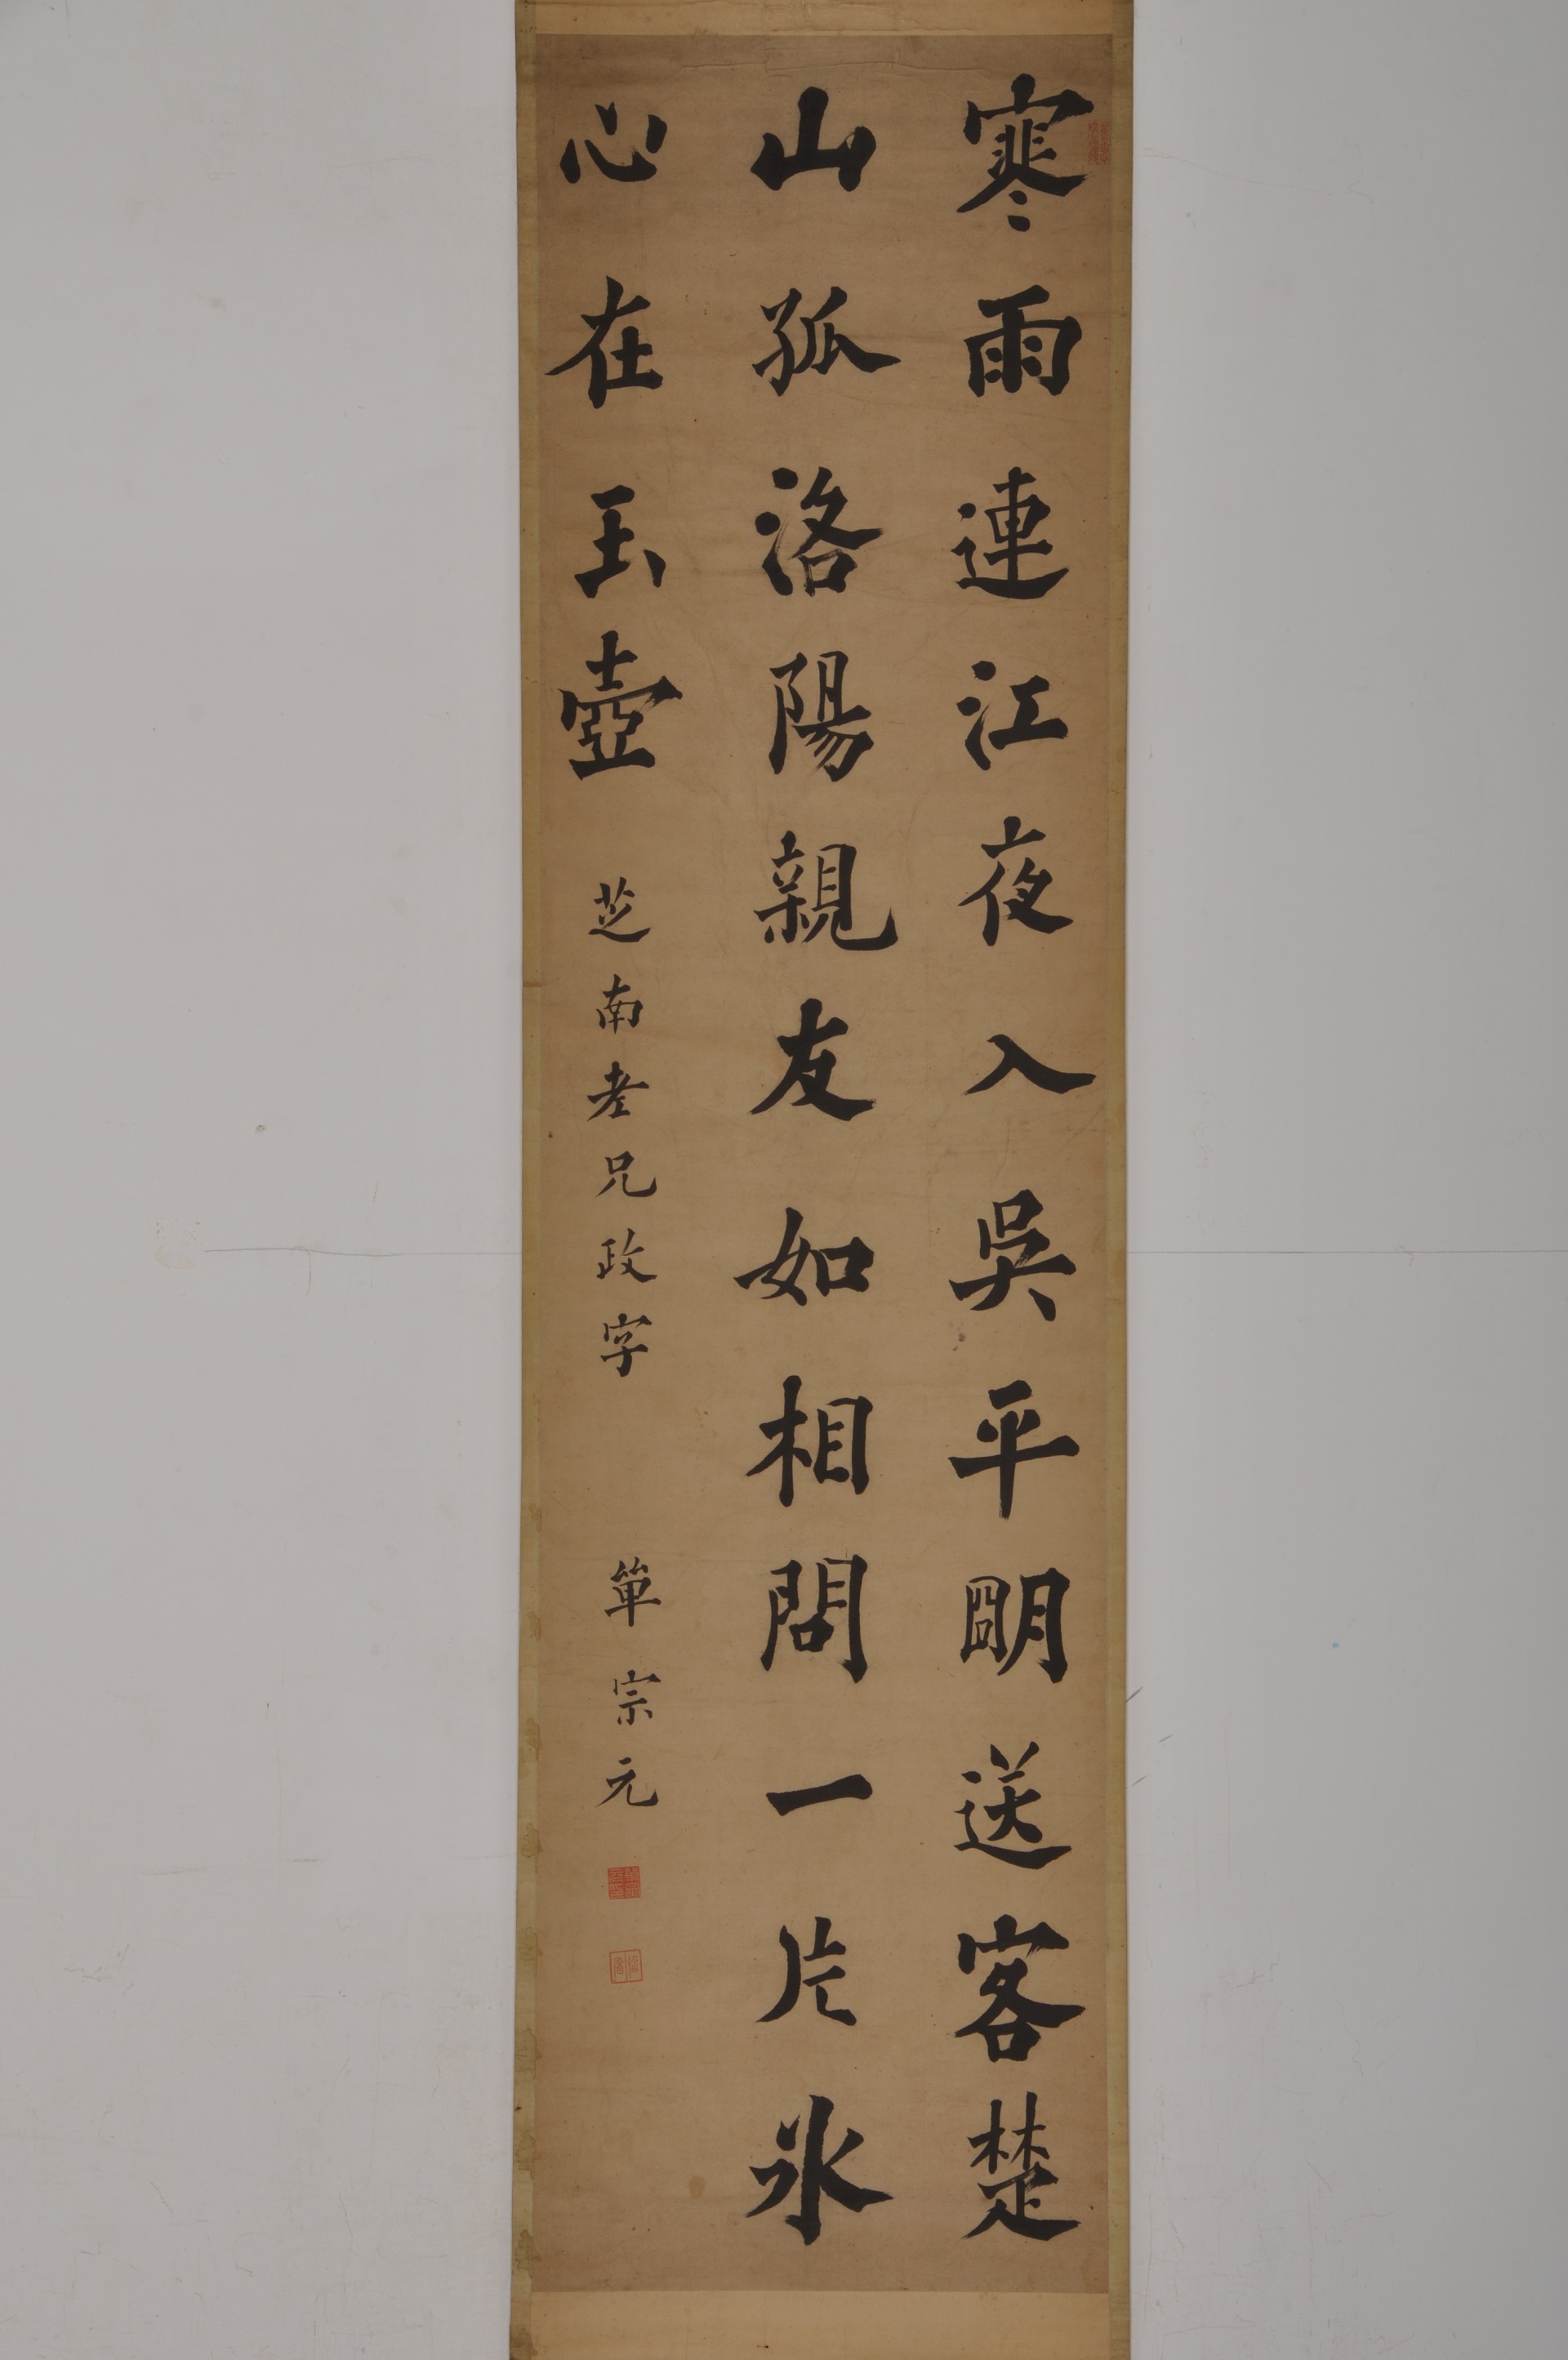 寒雨連江夜入吳平明送客楚
山孤洛陽親友如相問一片氷
心在玉壺
芝南老兄政字
單宗元